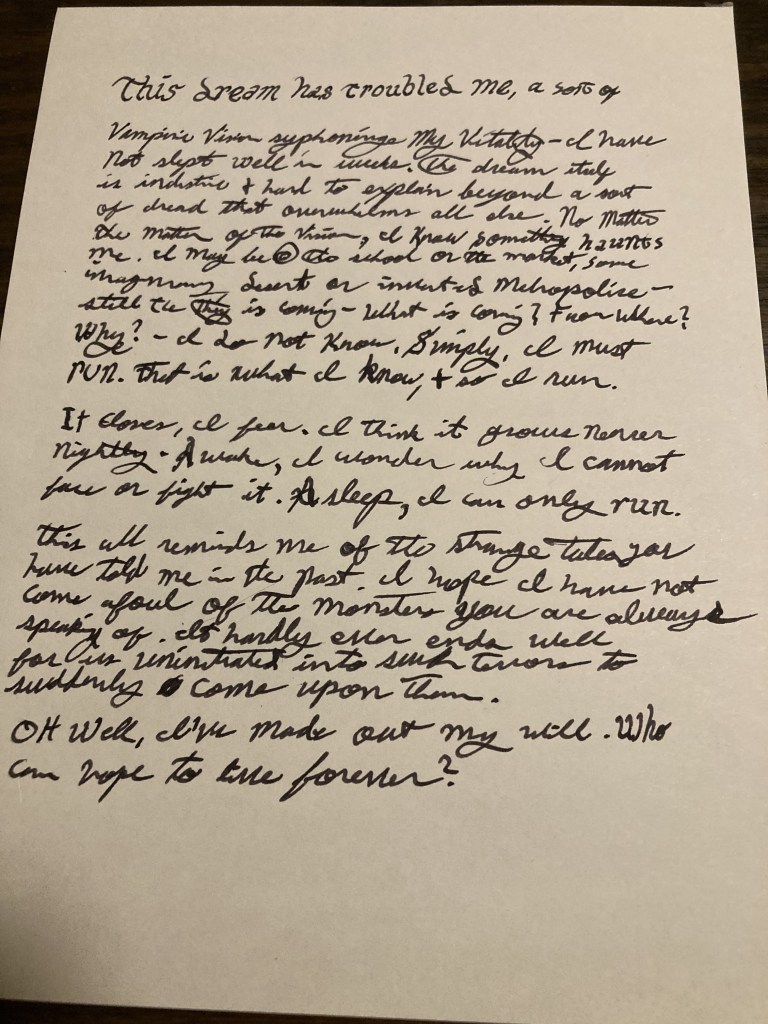 This dream has troubled me, a sort of
Vampiric Vision syphoning My Vitality - I have
Not slept well in weeks. The dream itself
is indistinct & hard to explain beyond a sort
of dread that overwhelms all else. No Matter
the matter of the Vision, I know something haunts
me. I may be @ the school or the market, some
imaginary desert or invented Metropolise -
still the is coming - What is coming? From Where?
Why? - I do not know. Simply, I must
run. That is what I know, & so I run.
It closes, I fear. I think it grows nearer
Nightly - Awake, I wonder why I cannot
face or fight it. Asleep, I can only run.
This all reminds me of the strange tales you
have told me in the past. I hope I have not
come afoul of the monsters you are always
speaking of. It hardly ever ends well
for us uninitiated into such terrors to
suddenly come upon them.
OH Well, I've made out my will. Who
can hope to live forever?